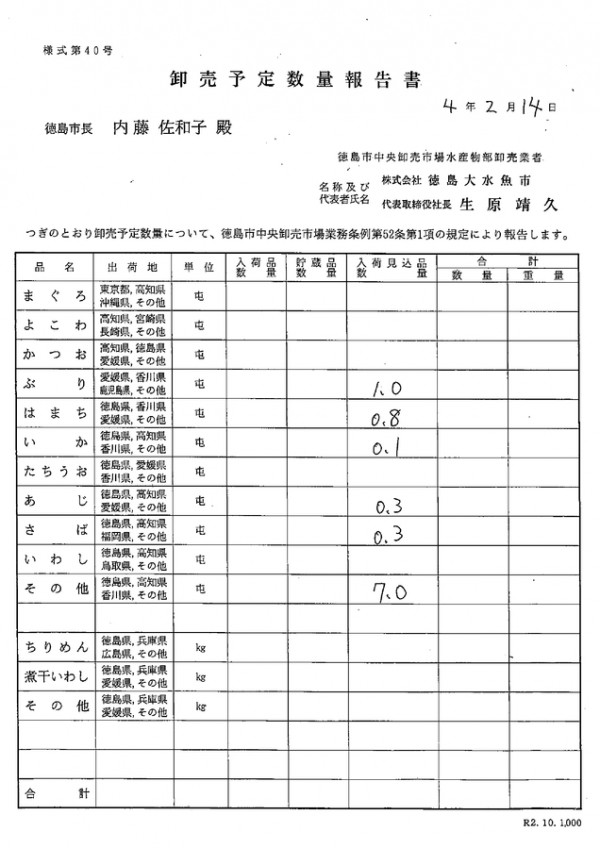 様式第40号
卸売予定数量報告書
4年2月14日
徳島市長 内藤 佐和子 殿
徳島市中央卸売市場水産物部卸売業者
名称及び 株式会社 徳島大水魚市
代表者氏名 代表取締役社長 生原靖久
つぎのとおり卸売予定数量について、徳島市中央卸売市場業務条例第52条第1項の規定により報告します。
品名 出荷地 単位 入荷品数量 貯蔵品数量 入荷見込品数量 合計
数量 重量
まぐろ 東京都, 高知県 屯
沖縄県, その他
よこわ 高知県, 宮崎県 屯
長崎県, その他
かつお 高知県, 徳島県 屯
愛媛県, その他
ぶり 愛媛県, 香川県 屯 1.0
鹿児島県, その他
はまち 徳島県, 香川県 屯 0.8
愛媛県, その他
いか 徳島県, 高知県 屯 0.1
香川県, その他
たちうお 徳島県, 愛媛県 屯
香川県, その他
あじ 徳島県, 高知県 屯 0.3
愛媛県, その他
さば 徳島県, 高知県 屯 0.3
福岡県, その他
いわし 徳島県, 高知県 屯
鳥取県, その他
その他 徳島県, 高知県 屯 7.0
香川県, その他
ちりめん 徳島県, 兵庫県 kg
広島県, その他
煮干いわし 徳島県, 兵庫県 kg
愛媛県, その他
その他 徳島県, 兵庫県 kg
愛媛県, その他
合計
R2.10.1,000